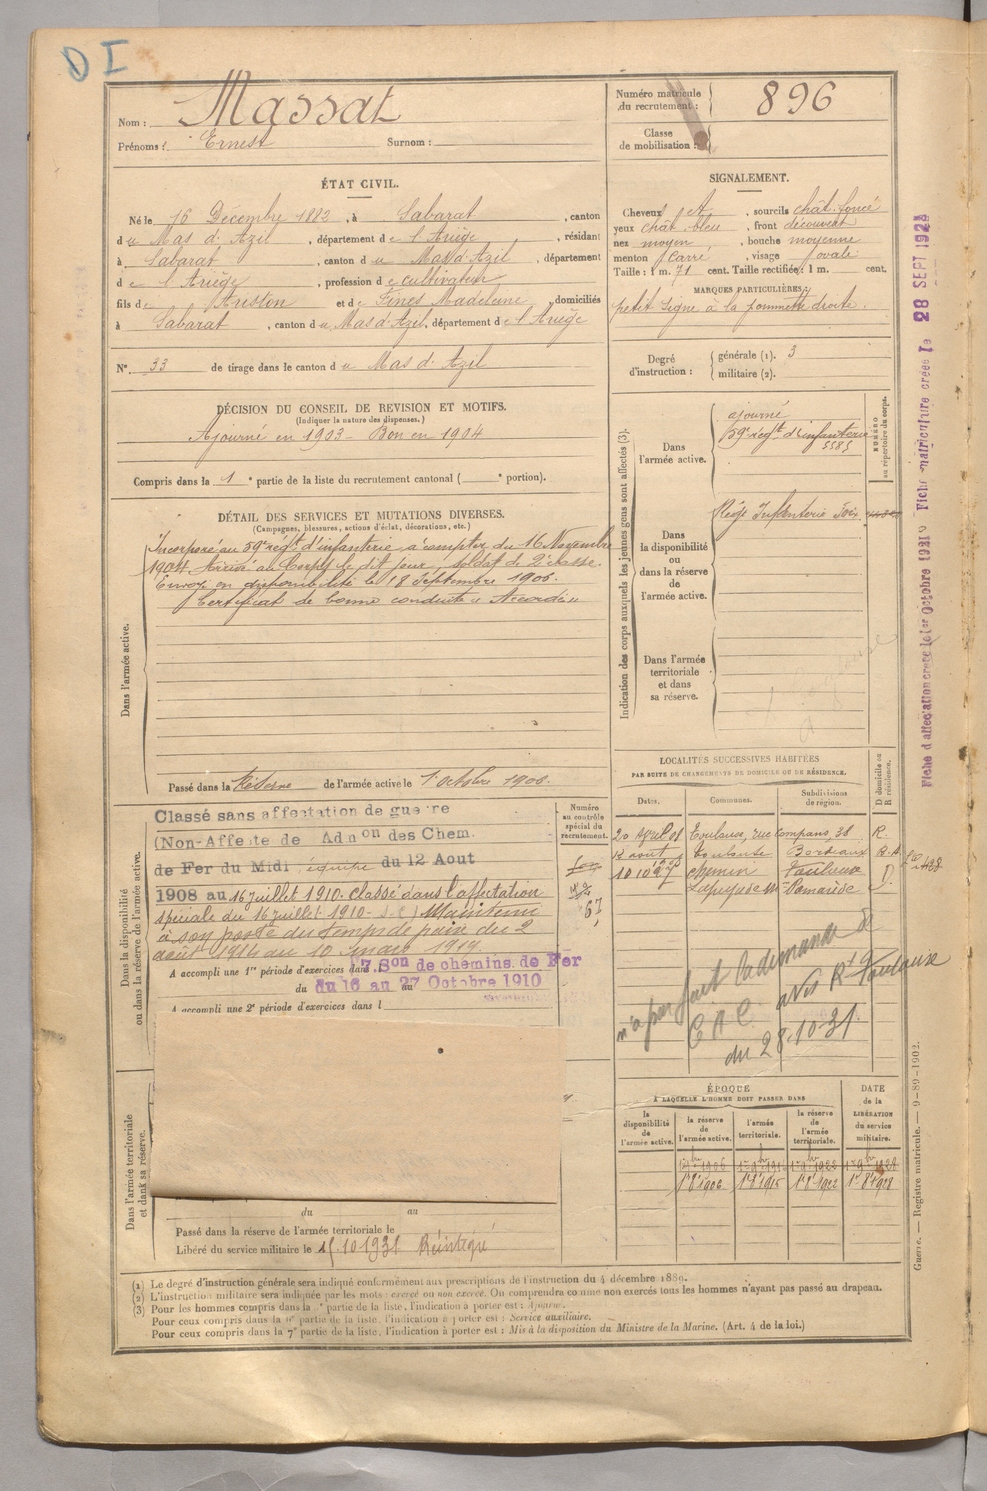 DI
Nom : Massat
Prénoms : Ernest Surnom :
Numéro matricule du recrutement : 896
Classe de mobilisation :
ÉTAT CIVIL.
Né le 16 Décembre 1882, à Sabarat, canton
du Mas d'Azil, département de l'Ariège, résidant
à Sabarat, canton du Mas d'Azil, département
de l'Ariège, profession de cultivateur
fils de Ariston et de Fines Madeleine domiciliés
à Sabarat, canton du Mas d'Azil, département de l'Ariège
N° 33 de tirage dans le canton du Mas d'Azil
SIGNALEMENT.
Cheveux et, sourcils chât. foncé
yeux chât. bleu, front découvert
nez moyen, bouche moyenne
menton carré, visage ovale
Taille : 1 m. 71 cent. Taille rectifiée : 1 m. cent.
MARQUES PARTICULIÈRES :
petit signe à la pommette droite.
Degré d'instruction : générale (1). 3
militaire (2).
DÉCISION DU CONSEIL DE REVISION ET MOTIFS.
(Indiquer la nature des dispenses.)
Ajourné en 1903 - Bon en 1904
Compris dans la 1e partie de la liste du recrutement cantonal ( e portion).
DÉTAIL DES SERVICES ET MUTATIONS DIVERSES.
(Campagnes, blessures, actions d'éclat, décorations, etc.)
Dans l'armée active.
Incorporé au 59e régt d'infanterie à compter du 16 Novembre
1904. Arrivé au Corps le dit jour, soldat de 2e classe.
Envoyé en disponibilité le 18 Septembre 1906.
Certificat de bonne conduite "Accordé"
Passé dans la Réserve de l'armée active le 1er octobre 1906.
Indication des corps auxquels les jeunes gens sont affectés (3).
NUMÉRO au répertoire du corps.
Dans l'armée active.
ajourné
59e régt d'infanterie
5585
Dans la disponibilité ou dans la réserve de l'armée active.
Régt Infanterie Foix
Dans l'armée territoriale et dans sa réserve.
Dans la disponibilité ou dans la réserve de l'armée active.
Classé sans affectation de guerre
(Non-Affecté de Adn on des Chem.
de Fer du Midi équipe du 12 Aout
1908 au 16 juillet 1910. Classé dans l'affectation
spéciale du 16 juillet 1910 - Maintenu
à son poste du temps de paix du 2
août 1914 au 10 mars 1919.
A accompli une 1re période d'exercices dans 7 Son de chemins de Fer
du 16 au 27 Octobre 1910
A accompli une 2e période d'exercices dans l
Numéro au contrôle spécial du recrutement.
67
LOCALITÉS SUCCESSIVES HABITÉES
PAR SUITE DE CHANGEMENTS DE DOMICILE OU DE RÉSIDENCE.
Dates. Communes. Subdivisions de région. D domicile ou R résidence.
20 Avril 08 Toulouse, rue Compans, 38 R.
12 août 1908 Toulouse Bordeaux
10 10 27 chemin Toulouse D.
n'a pas fait la demande de
C A C avis Rt Toulouse
du 28.10.31.
Dans l'armée territoriale et dans sa réserve.
du au
Passé dans la réserve de l'armée territoriale le
Libéré du service militaire le 15.10.1931 Réintégré
ÉPOQUE
A LAQUELLE L'HOMME DOIT PASSER DANS
DATE de la LIBÉRATION du service militaire.
la disponibilité de l'armée active. la réserve de l'armée active. l'armée territoriale. la réserve de l'armée territoriale.
1r 8bre 1906 1r 8bre 1915 1r 8bre 1922 1r 8bre 1928
(1) Le degré d'instruction générale sera indiqué conformément aux prescriptions de l'instruction du 4 décembre 1889.
(2) L'instruction militaire sera indiquée par les mots : exercé ou non exercé. On comprendra comme non exercés tous les hommes n'ayant pas passé au drapeau.
(3) Pour les hommes compris dans la e partie de la liste, l'indication à porter est : Ajourné.
Pour ceux compris dans la 6e partie de la liste, l'indication à porter est : Service auxiliaire.
Pour ceux compris dans la 7e partie de la liste, l'indication à porter est : Mis à la disposition du Ministre de la Marine. (Art. 4 de la loi.)
Fiche d'affectation créée le 1er Octobre 1921
Fiche matriculaire créée le 28 SEPT 1928
Guerre. — Registre matricule. — 9-89-1902.